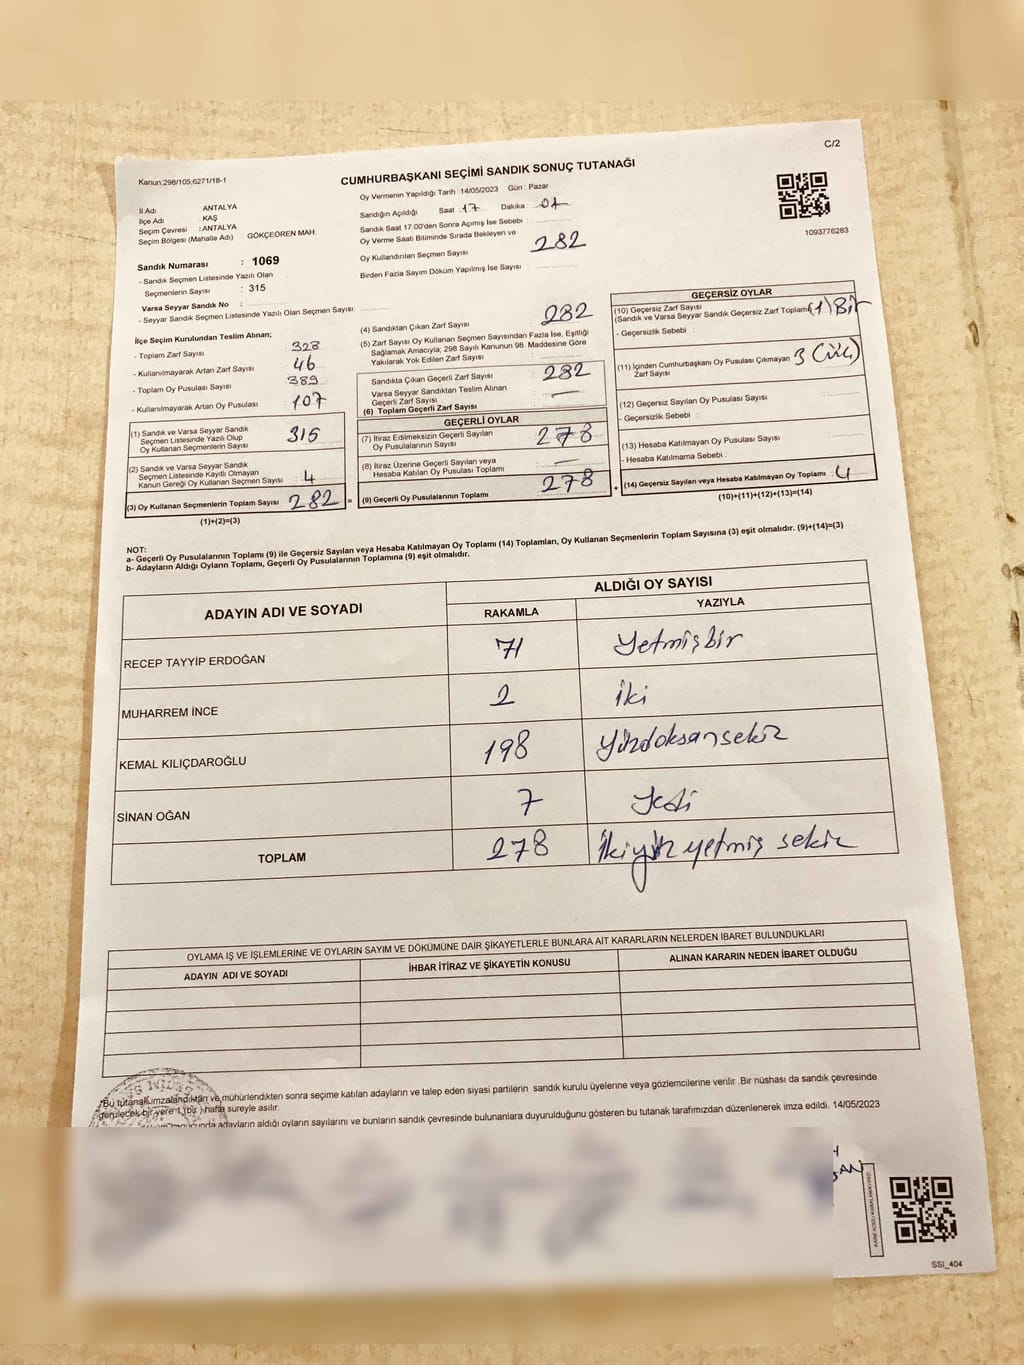 C/2
Kanun:298/105;6271/18-1
CUMHURBAŞKANI SEÇİMİ SANDIK SONUÇ TUTANAĞI
Oy Vermenin Yapıldığı Tarih :14/05/2023 Gün : Pazar
İl Adı ANTALYA
İlçe Adı KAŞ
Seçim Çevresi : ANTALYA
Seçim Bölgesi (Mahalle Adı) GÖKÇEÖREN MAH.
Sandık Numarası : 1069
- Sandık Seçmen Listesinde Yazılı Olan
Seçmenlerin Sayısı : 315
Varsa Seyyar Sandık No :
- Seyyar Sandık Seçmen Listesinde Yazılı Olan Seçmen Sayısı:
Sandığın Açıldığı Saat :17 Dakika :01
Sandık Saat 17.00'den Sonra Açımış İse Sebebi :
Oy Verme Saati Bitiminde Sırada Bekleyen ve
Oy Kullandırılan Seçmen Sayısı 282
Birden Fazla Sayım Döküm Yapılmış İse Sayısı :
1093776283
İlçe Seçim Kurulundan Teslim Alınan;
- Toplam Zarf Sayısı 328
- Kullanılmayarak Artan Zarf Sayısı 46
- Toplam Oy Pusulası Sayısı 389
- Kullanılmayarak Artan Oy Pusulası 107
(1) Sandık ve Varsa Seyyar Sandık
Seçmen Listesinde Yazılı Olup
Oy Kullanan Seçmenlerin Sayısı 315
(2) Sandık ve Varsa Seyyar Sandık
Seçmen Listesinde Kayıtlı Olmayan
Kanun Gereği Oy Kullanan Seçmen Sayısı : 4
(3) Oy Kullanan Seçmenlerin Toplam Sayısı 282 =
(1)+(2)=(3)
(4) Sandıktan Çıkan Zarf Sayısı 282
(5) Zarf Sayısı Oy Kullanan Seçmen Sayısından Fazla İse, Eşitliği
Sağlamak Amacıyla; 298 Sayılı Kanunun 98. Maddesine Göre
Yakılarak Yok Edilen Zarf Sayısı :
Sandıkta Çıkan Geçerli Zarf Sayısı 282
Varsa Seyyar Sandıktan Teslim Alınan
Geçerli Zarf Sayısı : —
(6) Toplam Geçerli Zarf Sayısı
GEÇERLİ OYLAR
(7) İtiraz Edilmeksizin Geçerli Sayılan
Oy Pusulalarının Sayısı : 278
(8) İtiraz Üzerine Geçerli Sayılan veya
Hesaba Katılan Oy Pusulası Toplamı : —
(9) Geçerli Oy Pusulalarının Toplamı 278 +
GEÇERSİZ OYLAR
(10) Geçersiz Zarf Sayısı
(Sandık ve Varsa Seyyar Sandık Geçersiz Zarf Toplamı) (1) Bir
- Geçersizlik Sebebi :
(11) İçinden Cumhurbaşkanı Oy Pusulası Çıkmayan 3 (Üç)
Zarf Sayısı
(12) Geçersiz Sayılan Oy Pusulası Sayısı
- Geçersizlik Sebebi :
(13) Hesaba Katılmayan Oy Pusulası Sayısı :
- Hesaba Katılmama Sebebi :
(14) Geçersiz Sayılan veya Hesaba Katılmayan Oy Toplamı : 4
(10)+(11)+(12)+(13)=(14)
NOT:
a- Geçerli Oy Pusulalarının Toplamı (9) ile Geçersiz Sayılan veya Hesaba Katılmayan Oy Toplamı (14) Toplamları, Oy Kullanan Seçmenlerin Toplam Sayısına (3) eşit olmalıdır. (9)+(14)=(3)
b- Adayların Aldığı Oyların Toplamı, Geçerli Oy Pusulalarının Toplamına (9) eşit olmalıdır.
ADAYIN ADI VE SOYADI ALDIĞI OY SAYISI
RAKAMLA YAZIYLA
RECEP TAYYİP ERDOĞAN 71 Yetmişbir
MUHARREM İNCE 2 İki
KEMAL KILIÇDAROĞLU 198 Yüzdoksansekiz
SİNAN OĞAN 7 Yedi
TOPLAM 278 İkiyüz yetmiş sekiz
OYLAMA İŞ VE İŞLEMLERİNE VE OYLARIN SAYIM VE DÖKÜMÜNE DAİR ŞİKAYETLERLE BUNLARA AİT KARARLARIN NELERDEN İBARET BULUNDUKLARI
ADAYIN ADI VE SOYADI İHBAR İTİRAZ VE ŞİKAYETİN KONUSU ALINAN KARARIN NEDEN İBARET OLDUĞU
"Bu tutanak imzalandıktan ve mühürlendikten sonra seçime katılan adayların ve talep eden siyasi partilerin sandık kurulu üyelerine veya gözlemcilerine verilir .Bir nüshası da sandık çevresinde
görülecek bir yere 1 (bir ) hafta süreyle asılır.
adayların aldığı oyların sayılarını ve bunların sandık çevresinde bulunanlara duyurulduğunu gösteren bu tutanak tarafımızdan düzenlenerek imza edildi. 14/05/2023
SSİ_404